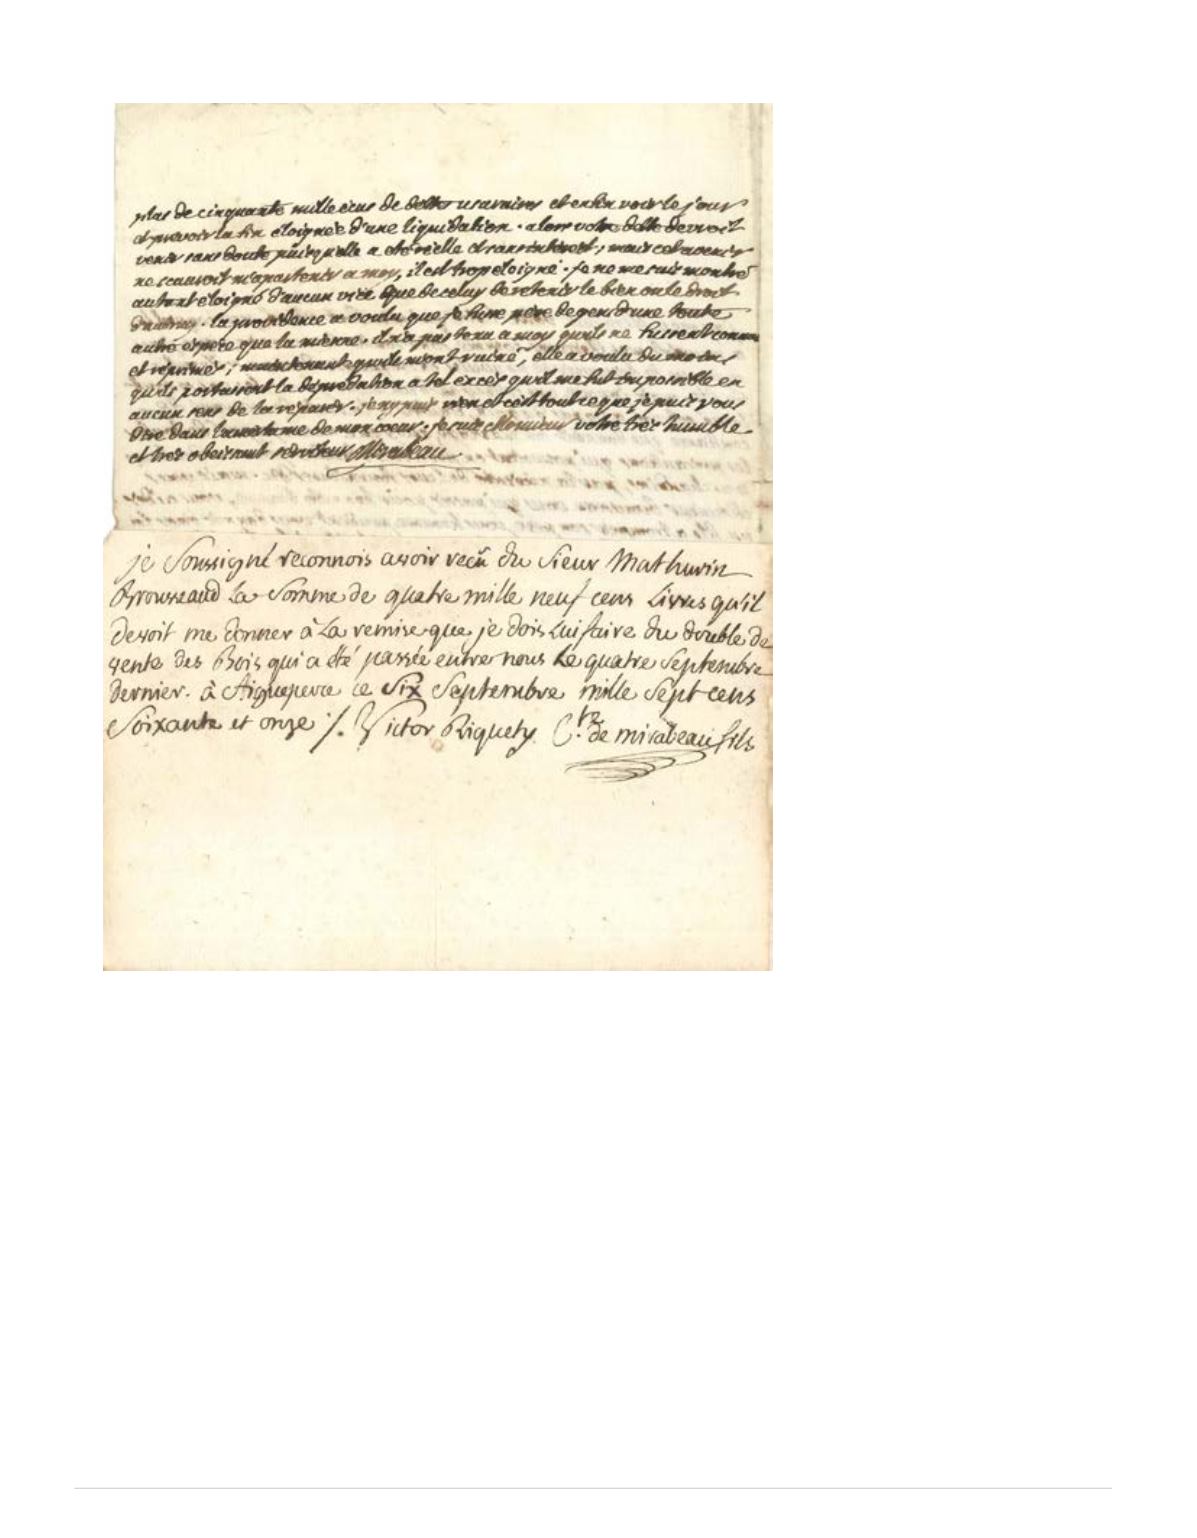 plus de cinquante mille ecus de dettes usuraires et enfin voir le jour
et prevoir la fin eloignée d'une liquidation. alors votre dette devroit
venir sans doute puisqu'elle a eté réelle et sans interest; mais cet avenir
ne scauroit m'apartenir a moy, il est trop eloigné. je ne me suis montré
autant eloigné d'aucun vice que de celuy de retenir le bien ou le droit
d'autruy. la providence a voulu que je fusse père de gens d'une toute
autre espece que la mienne. il n'a pas tenu a moy qu'ils ne fussent connus
et réprimés; maintenant qu'ils m'ont ruiné, elle a voulu du moins
qu'ils portassent la déprédation a tel excès qu'il me fut impossible en
aucun sens de la réparer. je n'y puis rien et c'est tout ce que je puis vous
dire dans de mon coeur. je suis Monsieur votre très humble
et très obeissant serviteur Mirabeau
je soussigné reconnois avoir reçû du sieur Mathurin
Brousseaud La somme de quatre mille neuf cens Livres qu'il
devoit me donner à La remise que je dois Lui faire du double de
vente des Bois qui a été passée entre nous Le quatre septembre
dernier. à Aigueperce ce Six Septembre mille Sept cens
Soixante et onze ./. Victor Riquety C.te de mirabeau fils